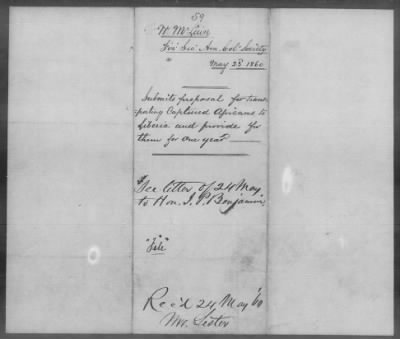 59
Wm McLain
Fin: Sec: Am. Col: Society
May 23 1860
Submits proposal for trans-
porting Captured Africans to
Liberia and provide for
them for one year
See letter of 24 May
to Hon. J. P. Benjamin
"File"
Rec'd 24 May '60
Mr.